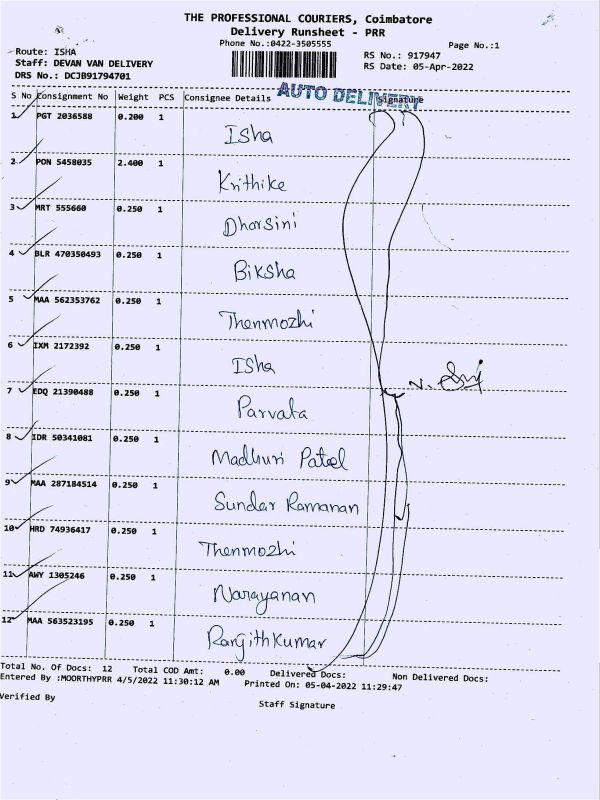 THE PROFESSIONAL COURIERS, Coimbatore
Delivery Runsheet - PRR
Phone No.:0422-3505555
Page No.:1
Route: ISHA
Staff: DEVAN VAN DELIVERY
DRS No.: DCJB91794701
RS No.: 917947
RS Date: 05-Apr-2022
AUTO DELIVERY
S No Consignment No Weight PCS Consignee Details Signature
1 PGT 2036588 0.200 1
Isha
2 PON 5458035 2.400 1
Krithike
3 MRT 555660 0.250 1
Dharsini
4 BLR 470350493 0.250 1
Biksha
5 MAA 562353762 0.250 1
Thenmozhi
6 IXM 2172392 0.250 1
Isha
7 EDQ 21390488 0.250 1
Parvata
8 IDR 50341081 0.250 1
Madhuri Patel
9 MAA 287184514 0.250 1
Sundar Ramanan
10 HRD 74936417 0.250 1
Thenmozhi
11 AWY 1305246 0.250 1
Narayanan
12 MAA 563523195 0.250 1
Ranjithkumar
Total No. Of Docs: 12 Total COD Amt: 0.00 Delivered Docs: Non Delivered Docs:
Entered By :MOORTHYPRR 4/5/2022 11:30:12 AM Printed On: 05-04-2022 11:29:47
Verified By
Staff Signature